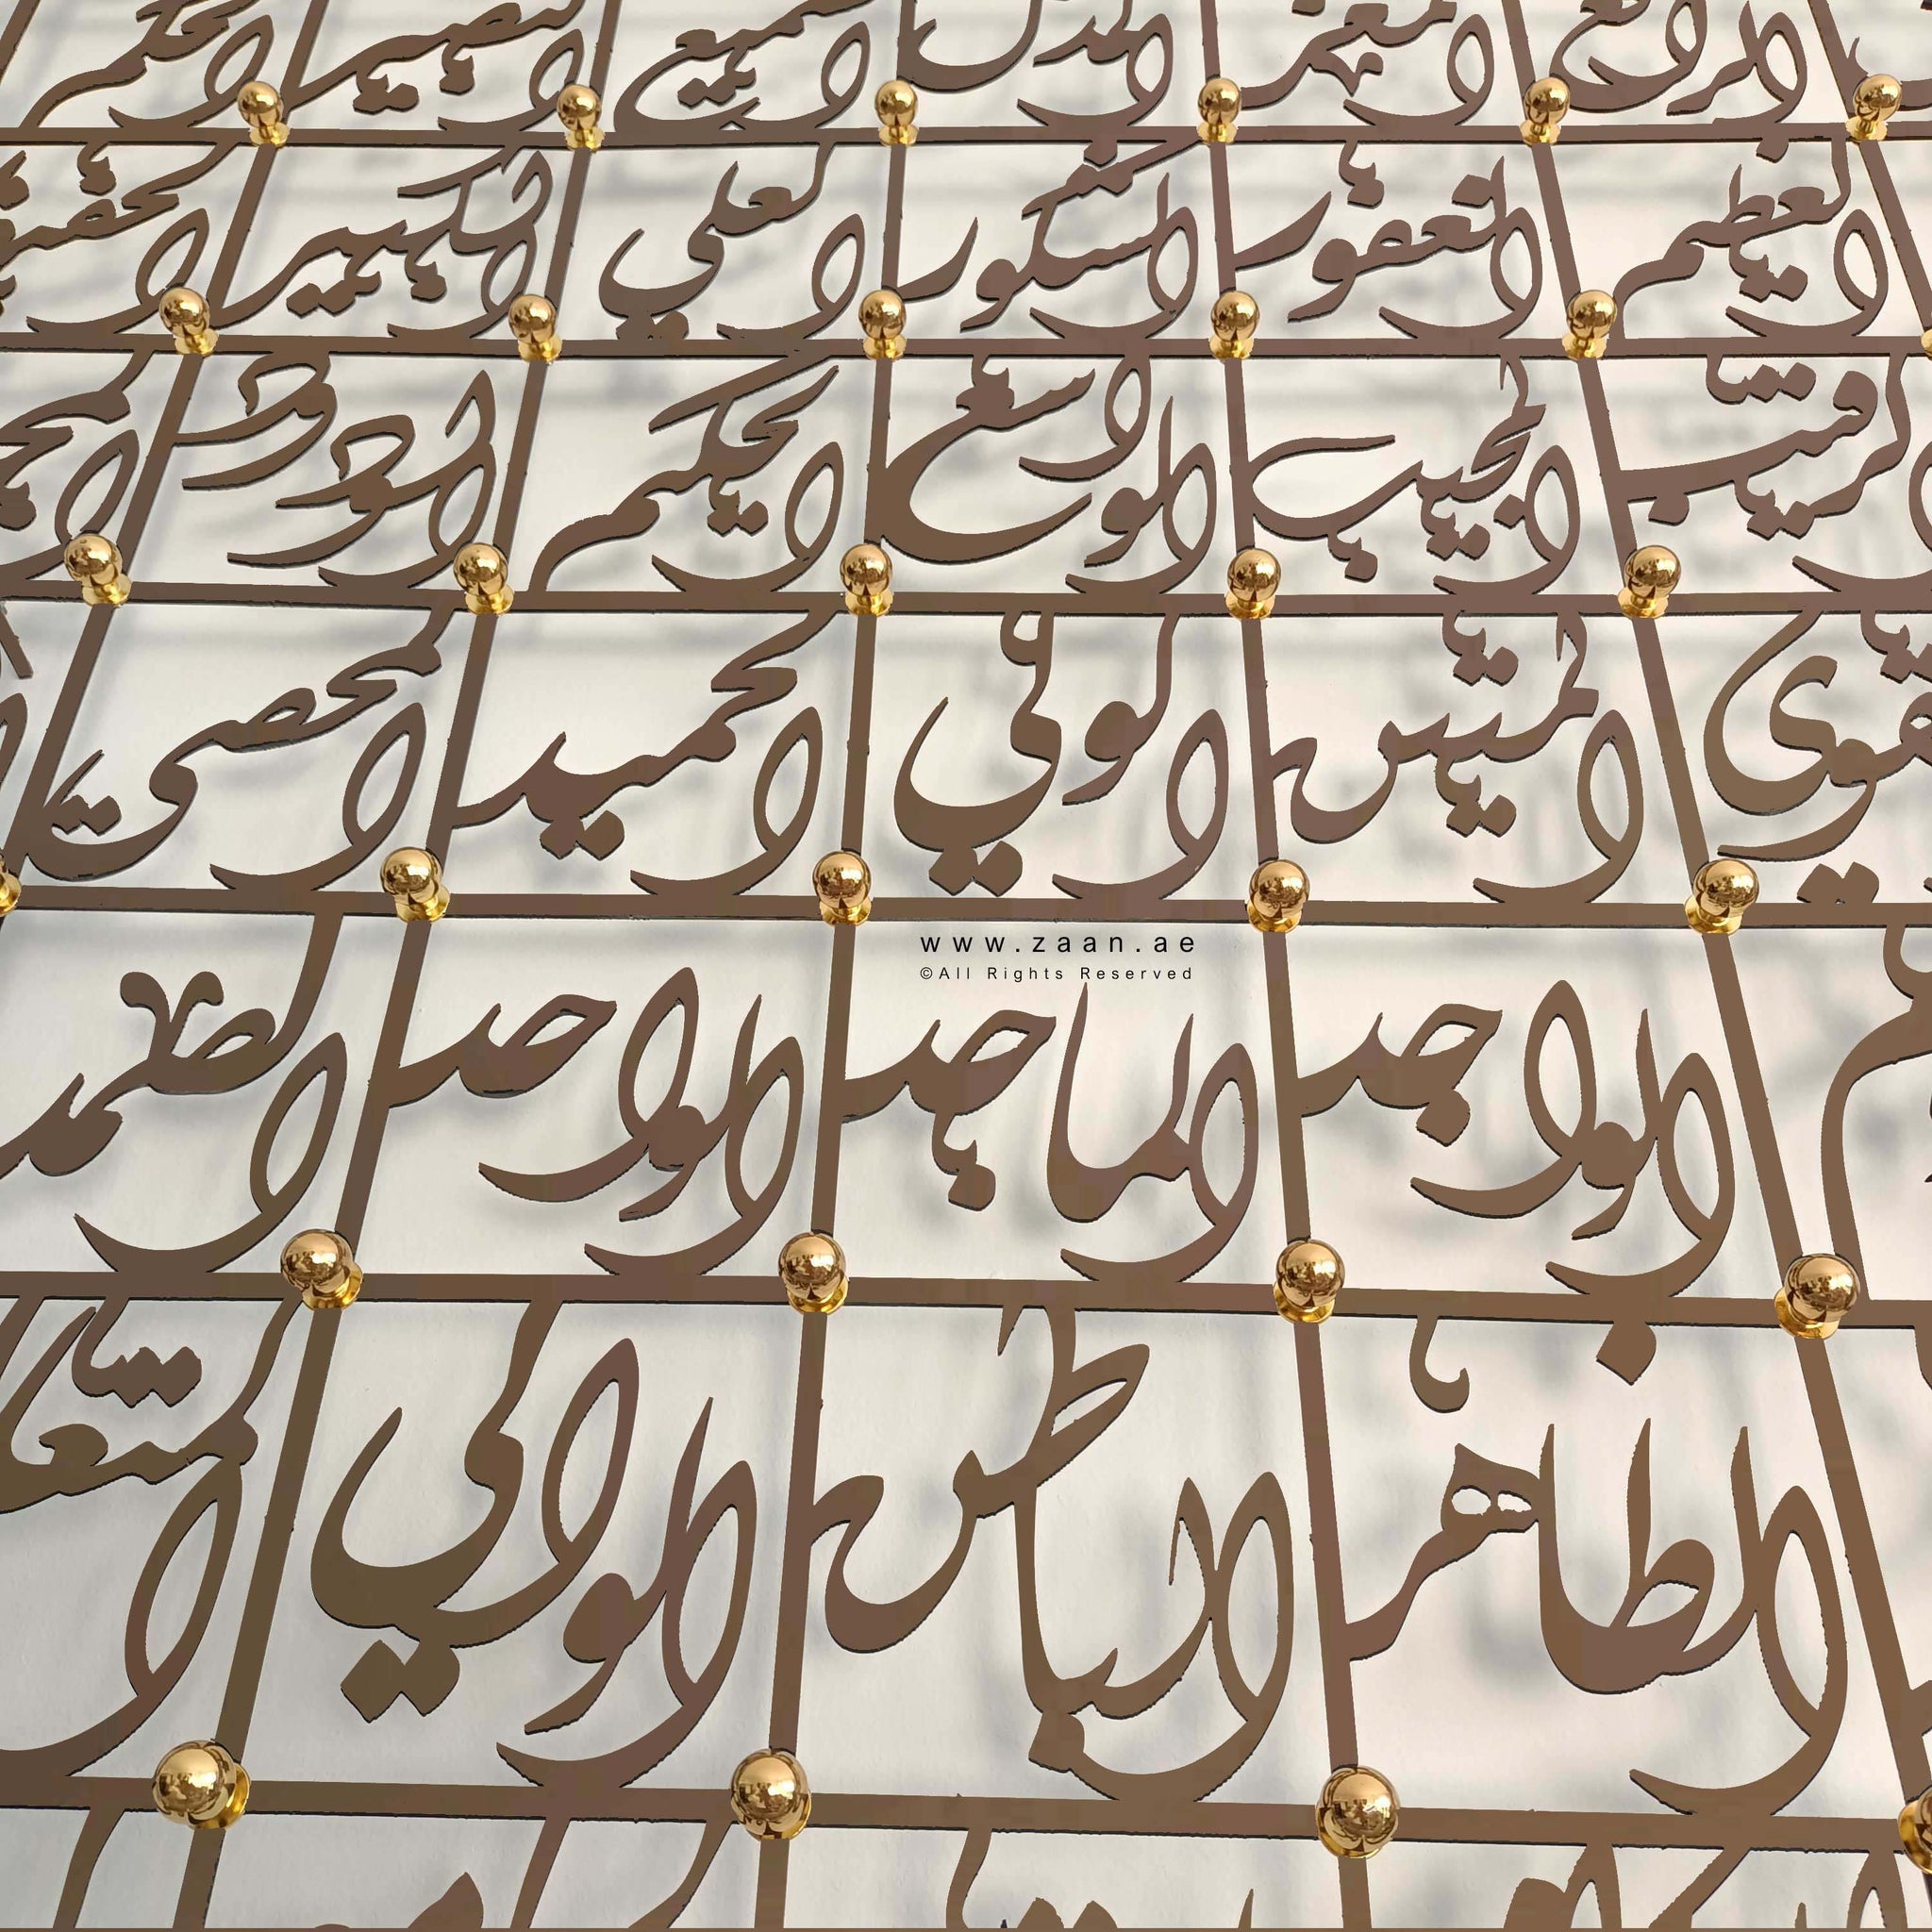 الرافع المعز المذل السميع البصير الحكم
العظيم الغفور الشكور العلي الكبير
الرقيب المجيب الواسع الحكيم الودود
القوي المتين الولي الحميد المحصي
www.zaan.ae
©All Rights Reserved
الواجد الماجد الواحد الصمد
الظاهر الباطن الوالي